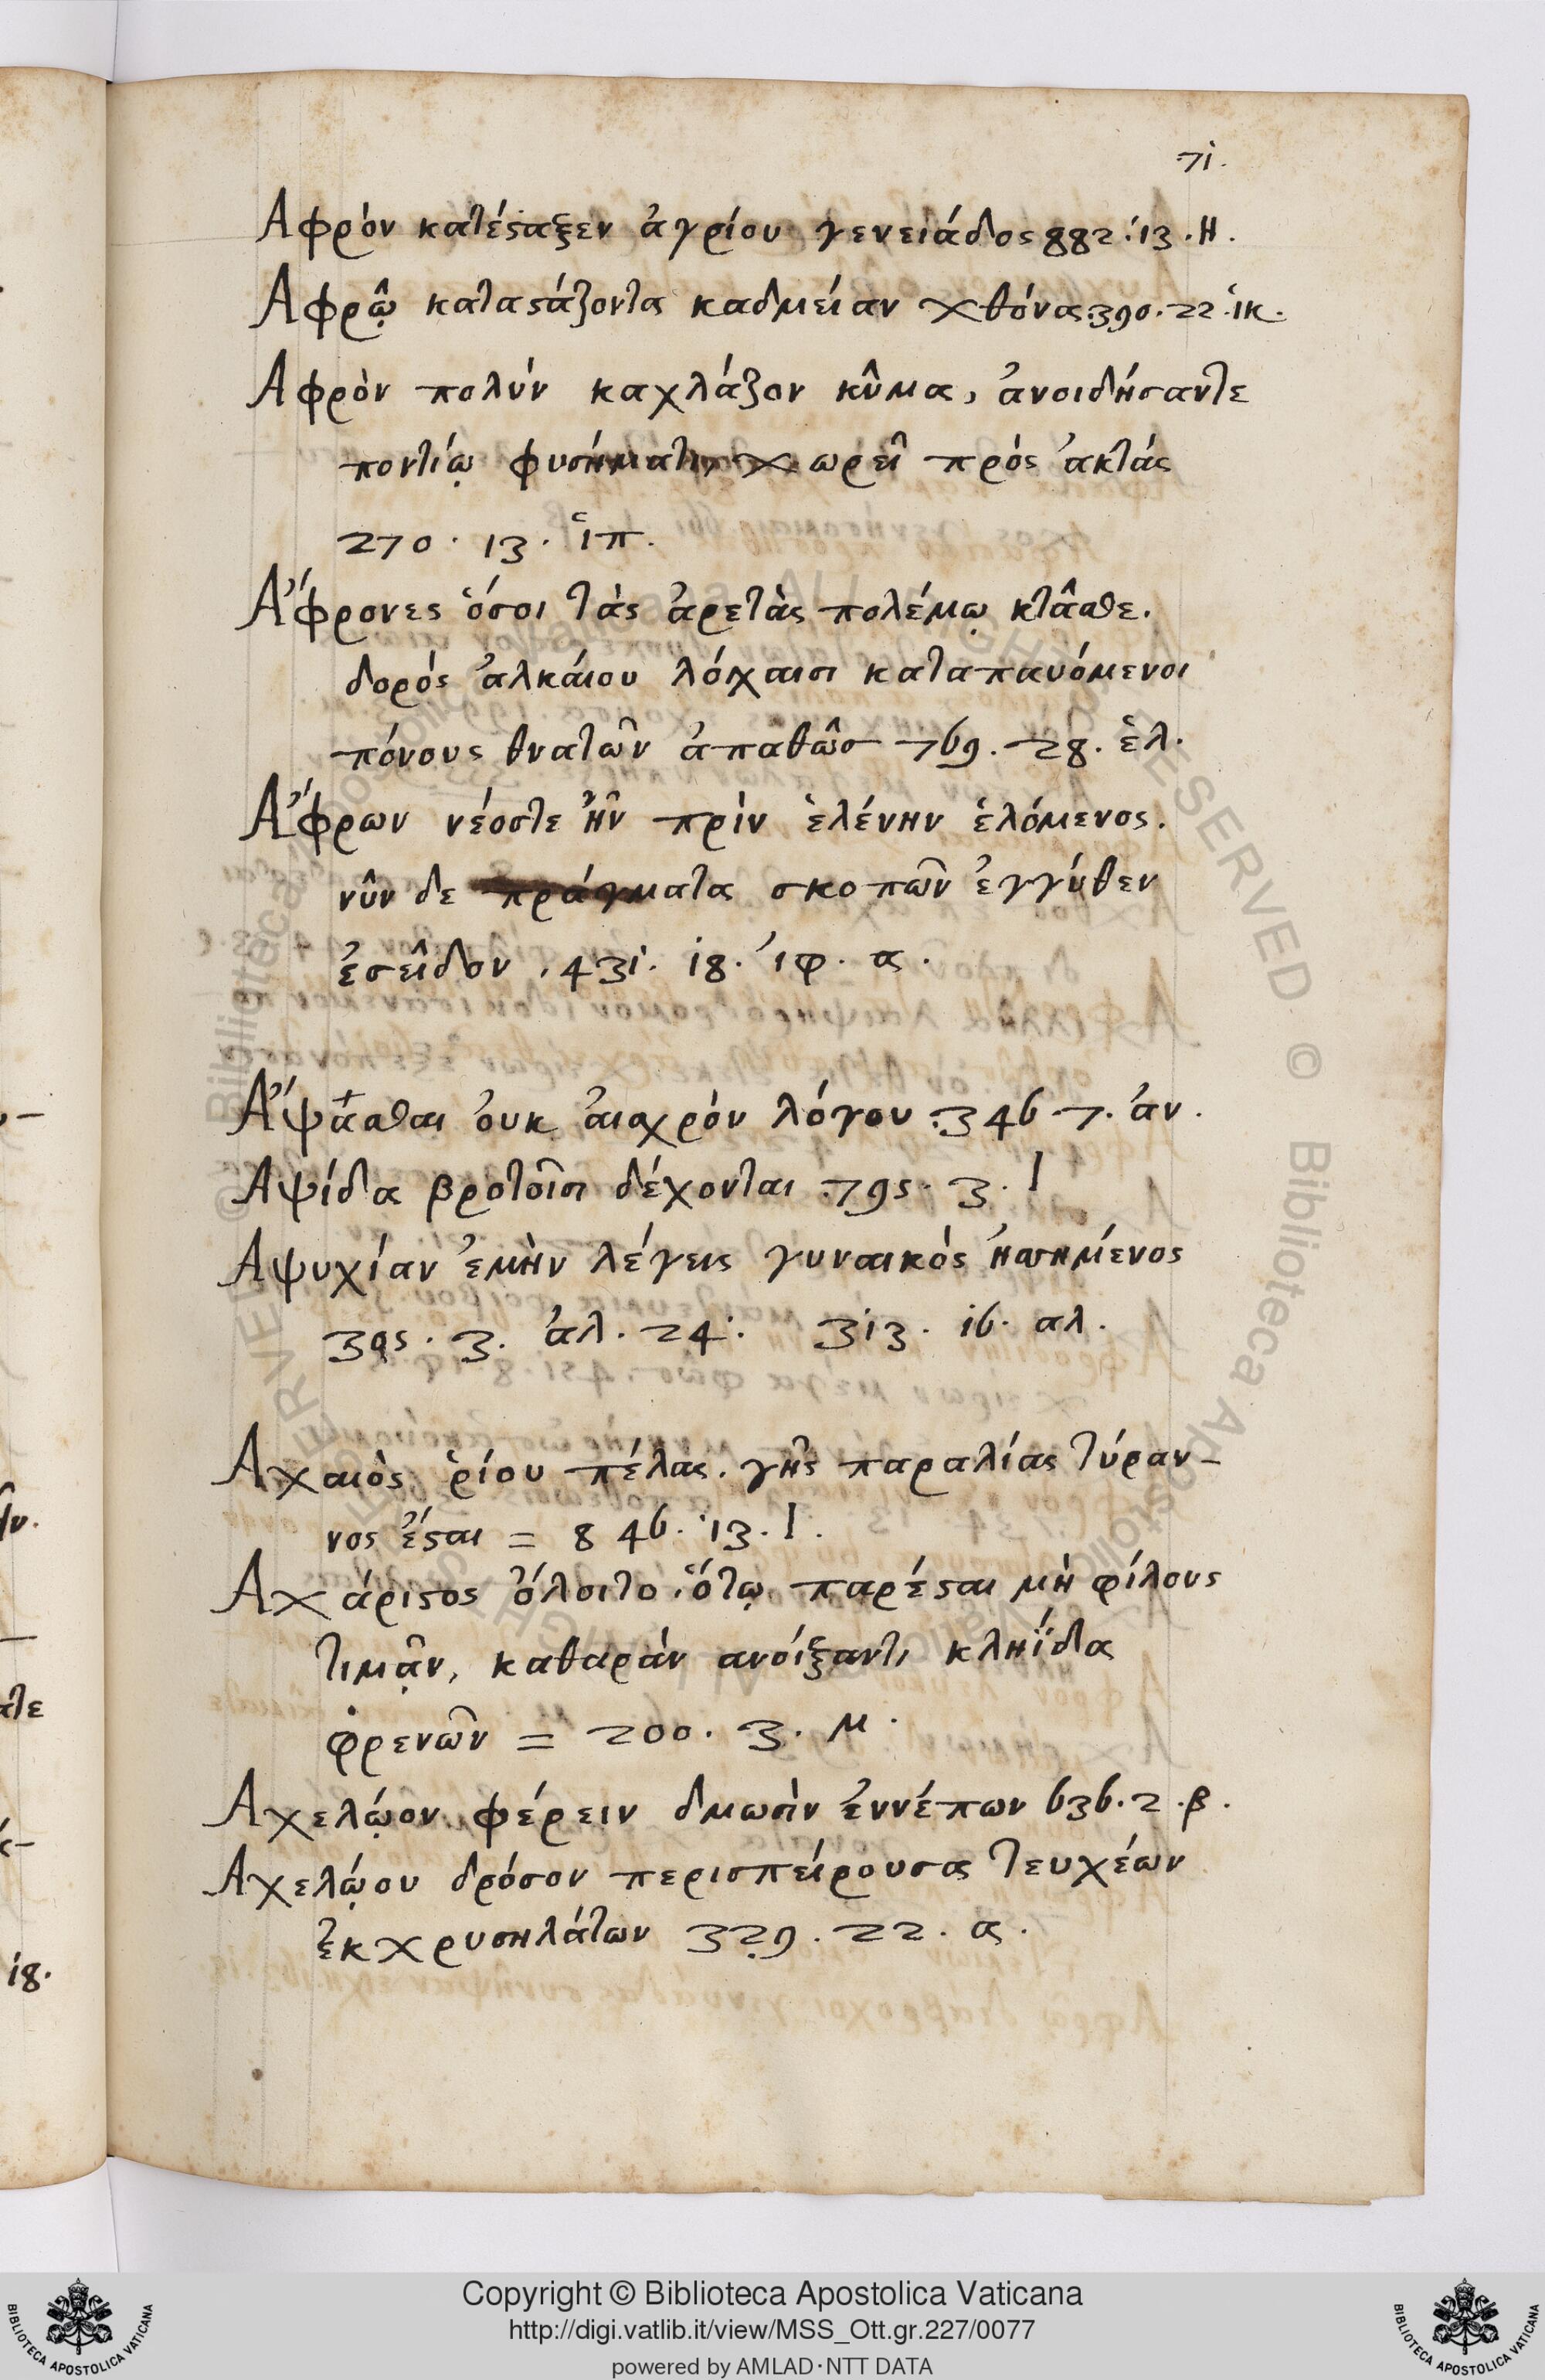 71.
Αφρόν κατέϛαξεν ἀγρίου γενειάδος 882. 13. Η.
Αφρῷ καταϛάζοντα καδμείαν χθόνα. 390. 22. ἱκ.
Αφρὸν πολύν καχλάζον κῦμα, ἀνοιδήσαντε
ποντίῳ φυσήματι, χωρεῖ πρός ἀκτάς
270. 13. ἱπ.
Ἄφρονες ὅσοι τὰς ἀρετὰς πολέμῳ κτᾶσθε.
δορός ἀλκαίου λόχαισι καταπαυόμενοι
πόνους θνατῶν ἀπαθῶσ 769. 28. ἑλ.
Ἄφρων νέοστε ἦν πρίν ἑλένην ἑλόμενος.
νῦν δε πράγματα σκοπῶν ἐγγύθεν
ἐσεῖδον. 431. 18. ἰφ. α.
Ἅψασθαι ὀυκ ἀισχρόν λόγου. 346. 7. ἀν.
Αψίδα βροτοῖσι δέχονται. 795. 3. Ι
Αψυχίαν ἐμὴν λέγεις γυναικός ἡσσημένος
305. 3. ἀλ. 24. 313. 16. αλ.
Αχαιὸς ῥίου πέλας. γῆς παραλίας τύραν-
νος ἔϛαι = 846. 13. Ι.
Αχάριϛος ὄλοιτο. ὅτῳ παρέϛαι μὴ φίλους
τιμᾷν, καθαράν ανοίξαντι κληΐδα
φρενῶν = 200. 3. μ.
Αχελῴον φέρειν δμωσὶν ἐννέπων 636. 2. β.
Αχελῴου δρόσον περισπείρουσα τευχέων
ἐκ χρυσηλάτων 329. 22. α.
ιν.
ατε
18.
Copyright © Biblioteca Apostolica Vaticana
http://digi.vatlib.it/view/MSS_Ott.gr.227/0077
powered by AMLAD·NTT DATA
BIBLIOTECA APOSTOLICA VATICANA
BIBLIOTECA APOSTOLICA VATICANA